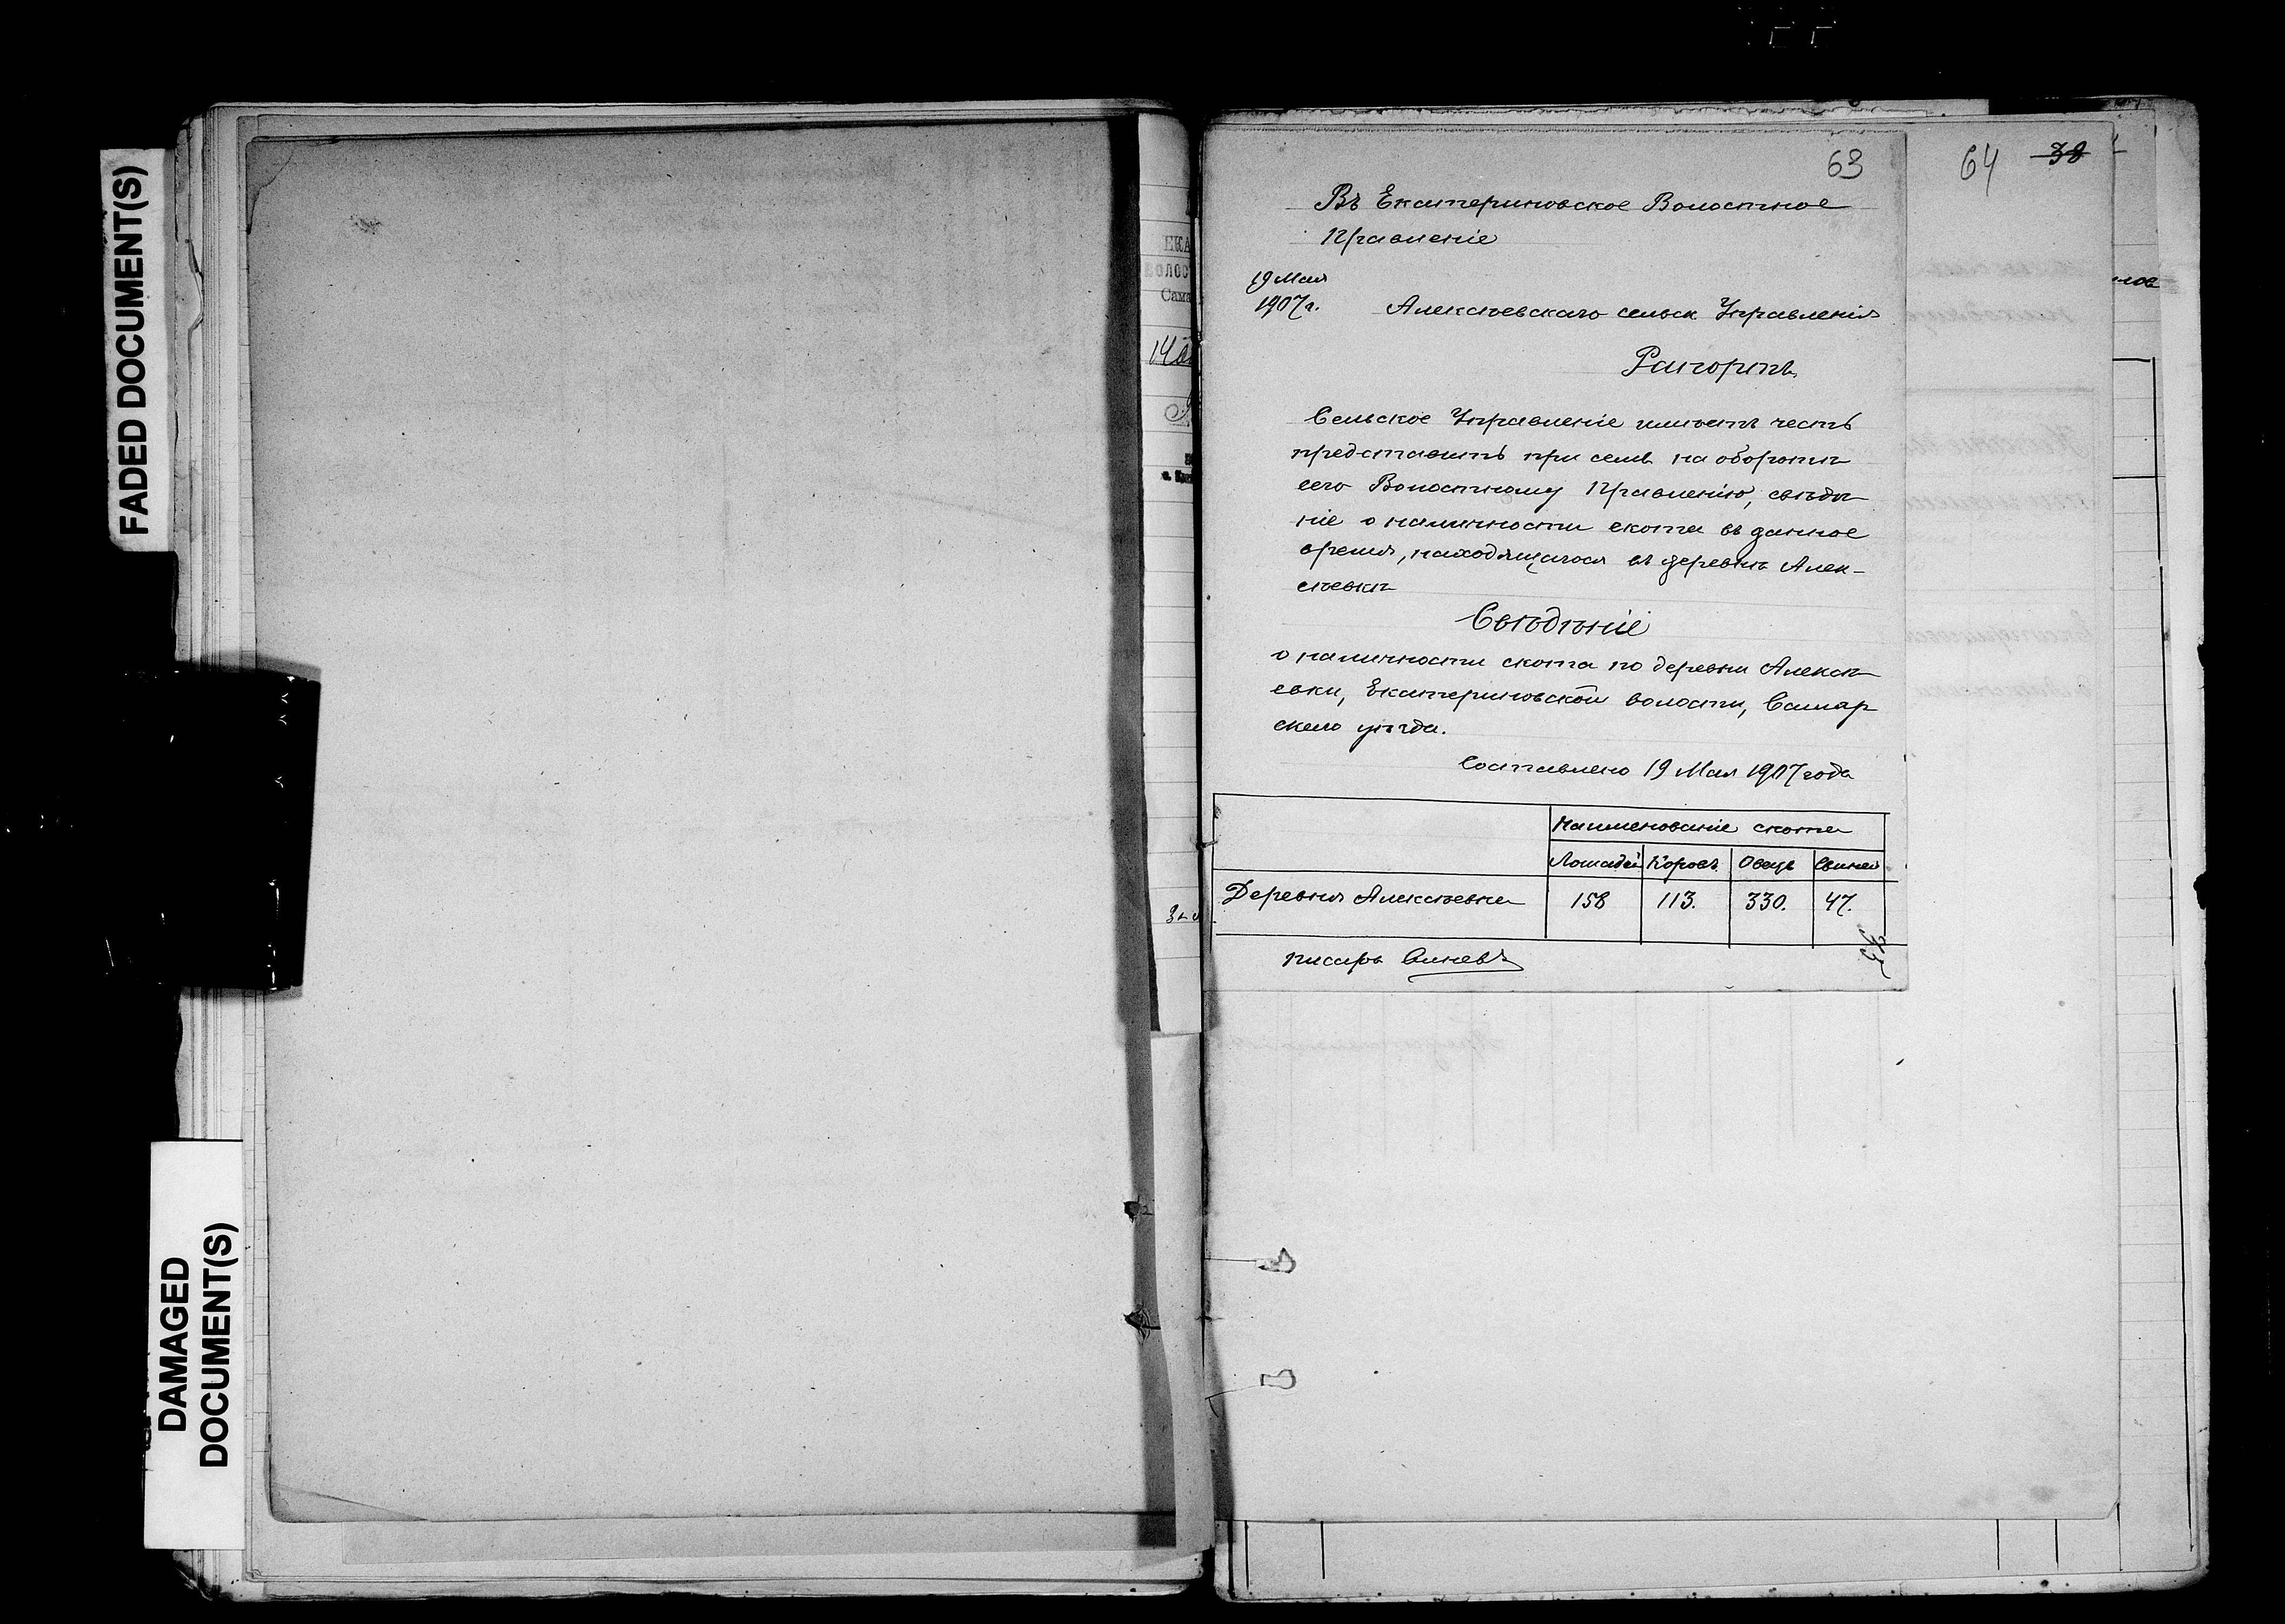 FADED DOCUMENT(S)
DAMAGED
DOCUMENT(S)
ЕКА
ВОЛОС
Сама
14
63
64 38
Въ Екатериновское Волостное
Правленіе
19 Мая
1907 г.
Алексѣевскаго сельск Управленія
Рапортъ
Сельское Управленіе имѣетъ честь
представить при семъ на оборотѣ
сего Волостному Правленію, свѣдѣ
ніе о наличности скота въ данное
время, находящагося въ деревнѣ Алек-
сѣевкѣ
Свѣдѣніе
о наличности скота по деревни Алексѣ
евки, Екатериновской волости, Самар
скаго уѣзда.
Составлено 19 Мая 1907 года
Наименованіе скота
Лошадей Коровъ Овецъ Свиней
Деревня Алексѣевка 158 113. 330. 47.
писарь